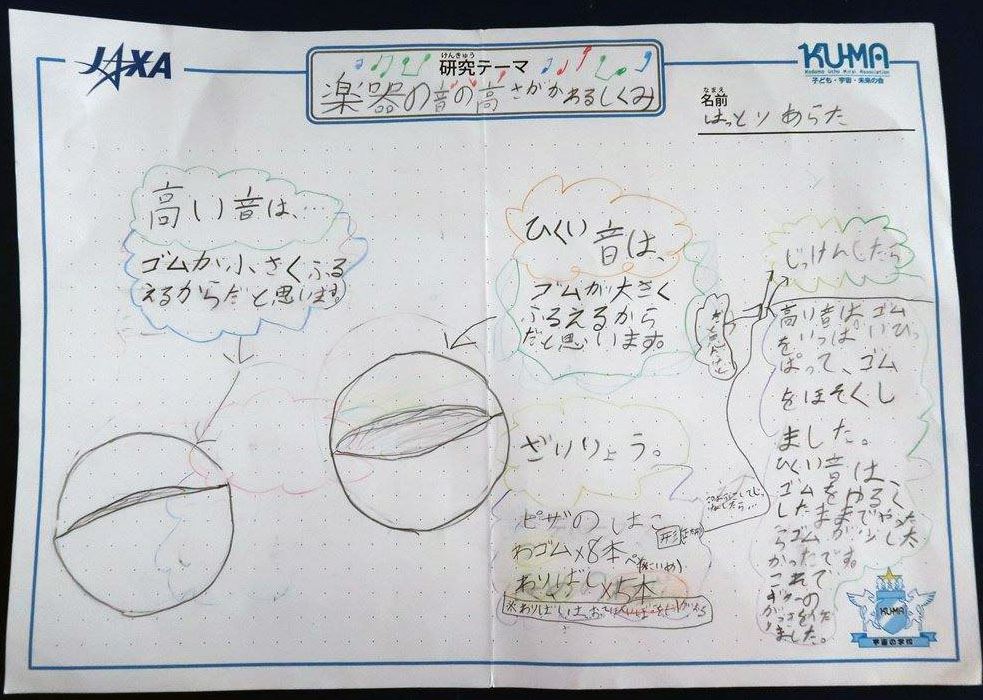 JAXA
けんきゅう
研究テーマ
楽器の音の高さがかわるしくみ
KU-MA
Kodomo Uchu Mirai Association
子ども・宇宙・未来の会
なまえ
名前
はっとり あらた
高い音は、…
ゴムが小さくふる
えるからだと思います。
ひくい音は、
ゴムが大きく
ふるえるから
だと思います。
ざいりょう。
ピザのはこ
わゴム×8本
わりばし×5本
じっけんしたら
高い音はゴム
をいっぱいひっ
ぱって、ゴム
をほそくし
ました。
ひくい音は、
ゴムをゆるく
したままでやった
らゴムが少し太
かったです。
これで
ギターの
ました。
KU-MA
宇宙の学校